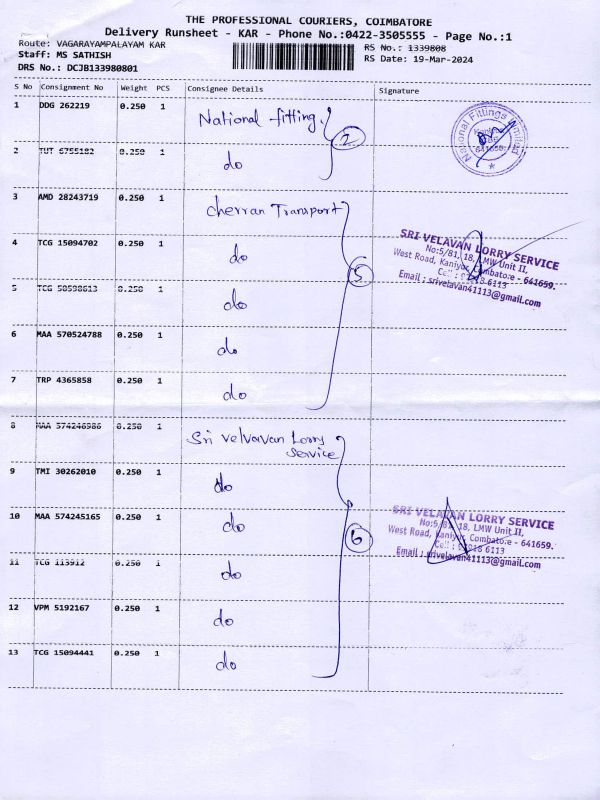 THE PROFESSIONAL COURIERS, COIMBATORE
Delivery Runsheet - KAR - Phone No.:0422-3505555 - Page No.:1
Route: VAGARAYAMPALAYAM KAR
RS No.: 1339808
Staff: MS SATHISH
RS Date: 19-Mar-2024
DRS No.: DCJB133980801
S No Consignment No Weight PCS Consignee Details Signature
1 DDG 262219 0.250 1 National fitting.
2
National Fittings Limited
641659
2 TUT 6755182 0.250 1 do
3 AMD 28243719 0.250 1 Cherran Transport
4 TCG 15094702 0.250 1 do
5
SRI VELAVAN LORRY SERVICE
No:5/81, 18, LMW Unit II,
West Road, Kaniyur, Combatore - 641659.
Cell : 6113
Email : srivelavan41113@gmail.com
5 TCG 50598613 0.250 1 do
6 MAA 570524788 0.250 1 do
7 TRP 4365858 0.250 1 do
8 MAA 574246986 0.250 1 Sri Velvavan Lorry
Service
9 TMI 30262010 0.250 1 do
10 MAA 574245165 0.250 1 do
6
SRI VELAVAN LORRY SERVICE
No:5/81, 18, LMW Unit II,
West Road, Kaniyur, Combatore - 641659.
Cell : 6113
Email : srivelavan41113@gmail.com
11 TCG 113912 0.250 1 do
12 VPM 5192167 0.250 1 do
13 TCG 15094441 0.250 1 do